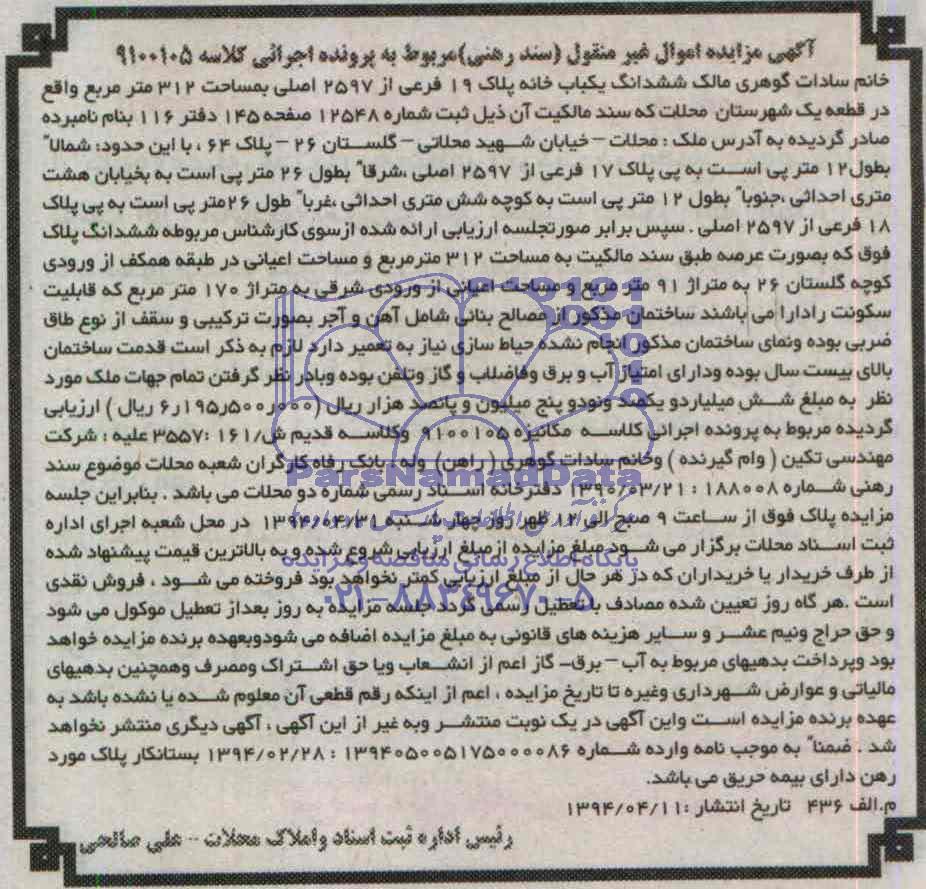 آگهی مزایده اموال غیر منقول (سند رهنی)مربوط به پرونده اجرائی کلاسه ۹۱۰۰۱۰۵
خانم سادات گوهری مالک ششدانگ یکباب خانه پلاک ۱۹ فرعی از ۲۵۹۷ اصلی بمساحت ۳۱۲ متر مربع واقع
در قطعه یک شهرستان محلات که سند مالکیت آن ذیل ثبت شماره ۱۲۵۴۸ صفحه ۱۴۵ دفتر ۱۱۶ بنام نامبرده
صادر گردیده به آدرس ملک : محلات – خیابان شهید محلاتی – گلستان ۲۶ – پلاک ۶۴ ، با این حدود: شمالاً
بطول۱۲ متر پی است به پی پلاک ۱۷ فرعی از ۲۵۹۷ اصلی ،شرقاً بطول ۲۶ متر پی است به بخیابان هشت
متری احداثی ،جنوباً بطول ۱۲ متر پی است به کوچه شش متری احداثی ،غرباً طول ۲۶متر پی است به پی پلاک
۱۸ فرعی از ۲۵۹۷ اصلی . سپس برابر صورتجلسه ارزیابی ارائه شده ازسوی کارشناس مربوطه ششدانگ پلاک
فوق که بصورت عرصه طبق سند مالکیت به مساحت ۳۱۲ مترمربع و مساحت اعیانی در طبقه همکف از ورودی
کوچه گلستان ۲۶ به متراژ ۹۱ متر مربع و مساحت اعیانی از ورودی شرقی به متراژ ۱۷۰ متر مربع که قابلیت
سکونت رادارا می باشند ساختمان مذکور از مصالح بنائی شامل آهن و آجر بصورت ترکیبی و سقف از نوع طاق
ضربی بوده ونمای ساختمان مذکور انجام نشده حیاط سازی نیاز به تعمیر دارد لازم به ذکر است قدمت ساختمان
بالای بیست سال بوده ودارای امتیاز آب و برق وفاضلاب و گاز وتلفن بوده وبادر نظر گرفتن تمام جهات ملک مورد
نظر به مبلغ شش میلیاردو یکصد ونودو پنج میلیون و پانصد هزار ریال (۶٫۱۹۵٫۵۰۰٫۰۰۰ ریال ) ارزیابی
گردیده مربوط به پرونده اجرائی کلاسه مکانیزه ۹۱۰۰۱۰۵ وکلاسه قدیم ش/۱۶۱ :۳۵۵۷ علیه : شرکت
مهندسی تکین ( وام گیرنده ) وخانم سادات گوهری ( راهن) وله : بانک رفاه کارگران شعبه محلات موضوع سند
رهنی شماره ۱۸۸۰۰۸ : ۱۳۹۰/۰۳/۲۱ دفترخانه اسناد رسمی شماره دو محلات می باشد . بنابراین جلسه
مزایده پلاک فوق از ساعت ۹ صبح الی ۱۲ ظهر روز چهار شنبه ۱۳۹۴/۰۴/۳۱ در محل شعبه اجرای اداره
ثبت اسناد محلات برگزار می شود مبلغ مزایده ازمبلغ ارزیابی شروع شده و به بالاترین قیمت پیشنهاد شده
از طرف خریدار یا خریداران که در هر حال از مبلغ ارزیابی کمتر نخواهد بود فروخته می شود ، فروش نقدی
است .هر گاه روز تعیین شده مصادف با تعطیل رسمی گردد جلسه مزایده به روز بعداز تعطیل موکول می شود
و حق حراج ونیم عشر و سایر هزینه های قانونی به مبلغ مزایده اضافه می شودوبعهده برنده مزایده خواهد
بود وپرداخت بدهیهای مربوط به آب – برق- گاز اعم از انشعاب ویا حق اشتراک ومصرف وهمچنین بدهیهای
مالیاتی و عوارض شهرداری وغیره تا تاریخ مزایده ، اعم از اینکه رقم قطعی آن معلوم شده یا نشده باشد به
عهده برنده مزایده است واین آگهی در یک نوبت منتشر وبه غیر از این آگهی ، آگهی دیگری منتشر نخواهد
شد . ضمناً به موجب نامه وارده شماره ۱۳۹۴۰۵۰۰۵۱۷۵۰۰۰۰۸۶ : ۱۳۹۴/۰۲/۲۸ بستانکار پلاک مورد
رهن دارای بیمه حریق می باشد.
م.الف ۴۳۶ تاریخ انتشار :۱۳۹۴/۰۴/۱۱
رئیس اداره ثبت اسناد واملاک محلات -- علی صالحی
ParsNamadData
پایگاه اطلاع رسانی مناقصه و مزایده
۰۲۱-۸۸۳۴۹۶۷۰-۵